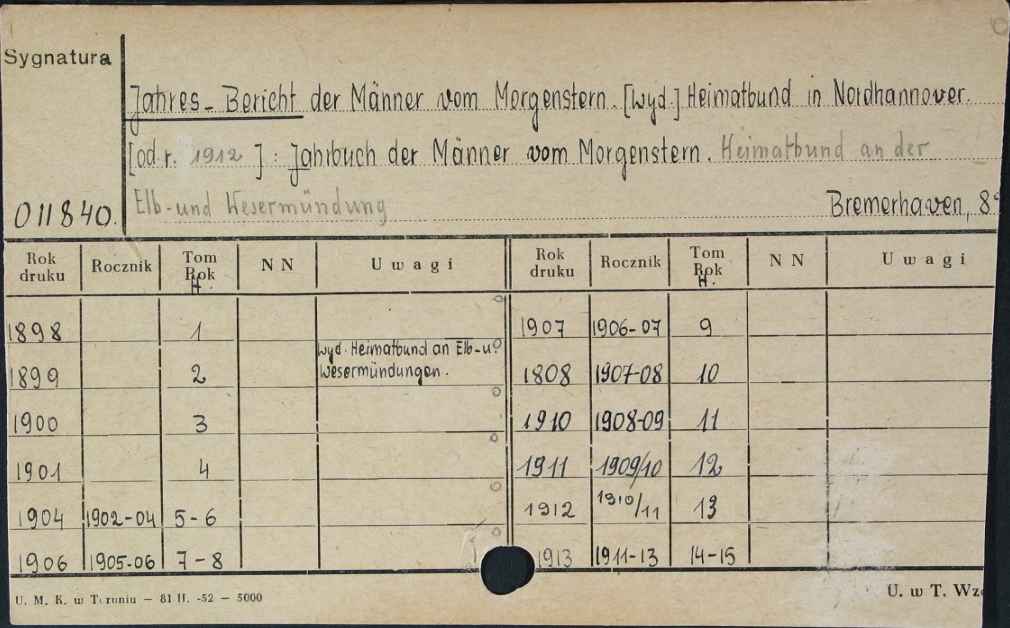 Sygnatura
Jahres-Bericht der Männer vom Morgenstern. [wyd.] Heimatbund in Nordhannover.
[od r. 1912 ] : Jahrbuch der Männer vom Morgenstern. Heimatbund an der
Elb- und Wesermündung
011840. Bremerhaven, 8°
Rok druku Rocznik Tom Rok H. NN Uwagi Rok druku Rocznik Tom Rok H. NN Uwagi
1898 1 1907 1906-07 9
wyd. Heimatbund an Elb-u.
1899 2 Wesermündungen. 1808 1907-08 10
1900 3 1910 1908-09 11
1901 4 1911 1909/10 12
1904 1902-04 5-6 1912 1910/11 13
1906 1905-06 7-8 1913 1911-13 14-15
U. M. K. w Toruniu — 81 II. -52 — 5000 U. w T. Wz